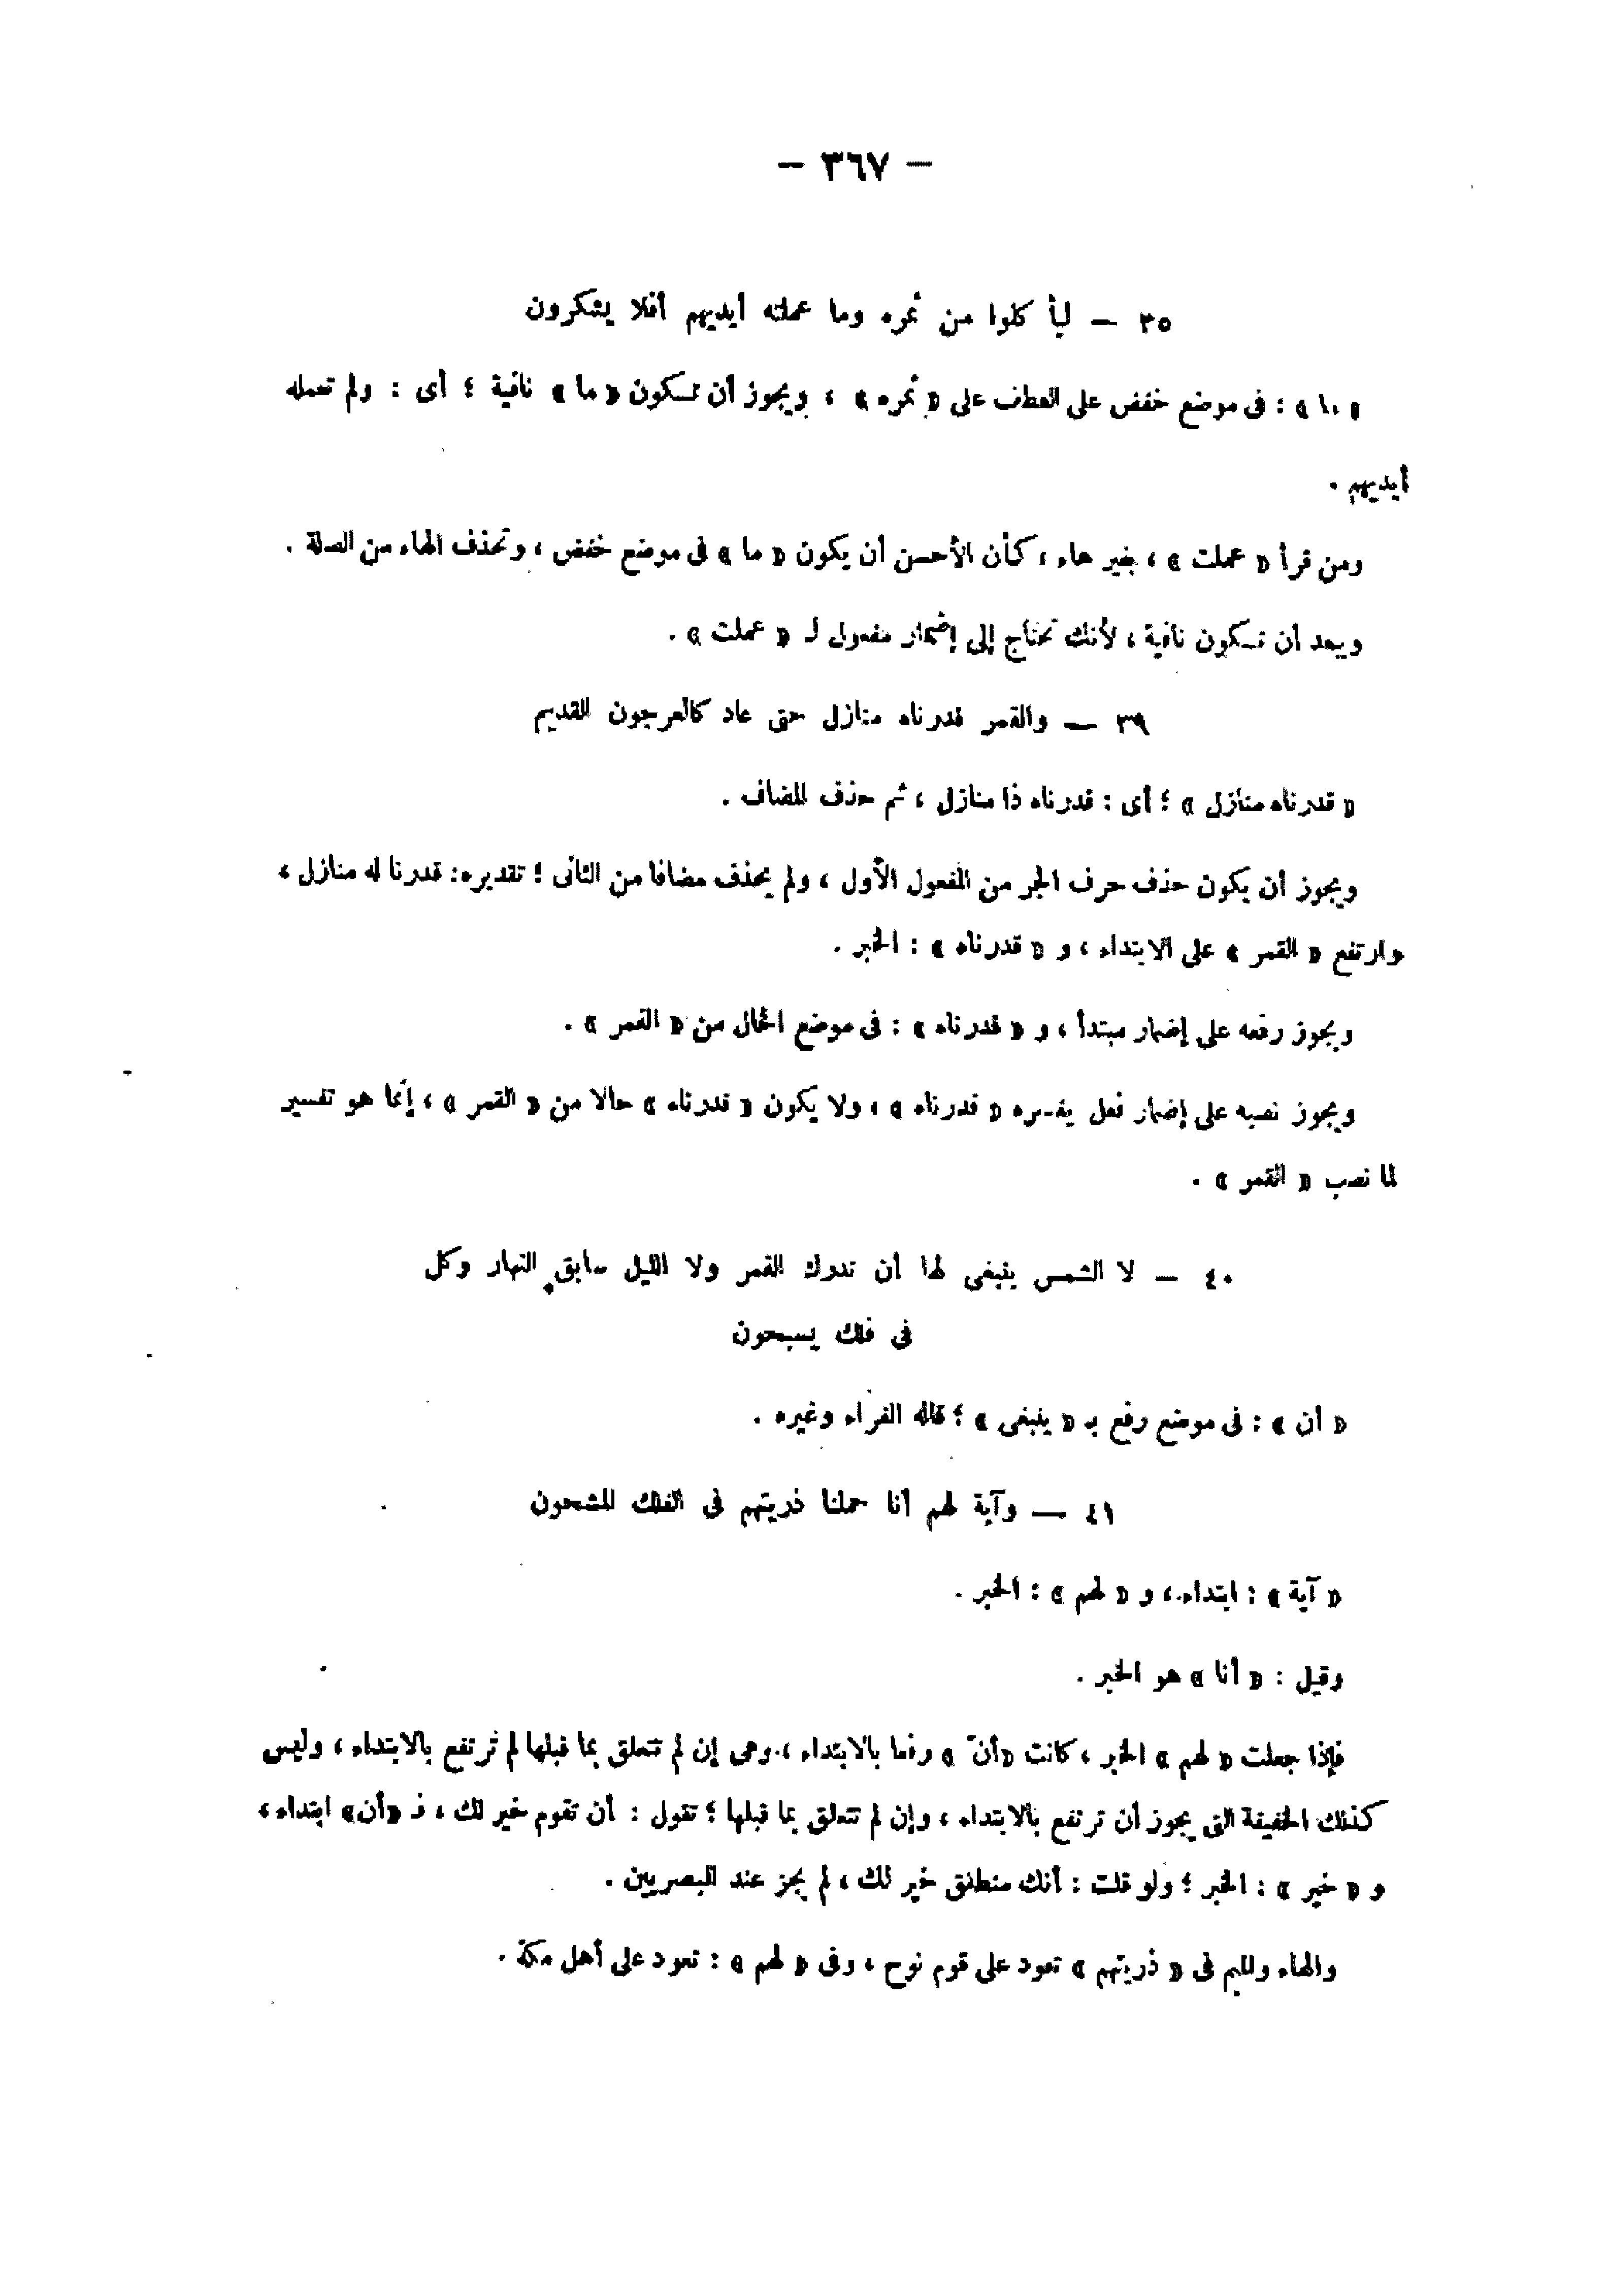 — ٣٦٧ —
٣٥ — ليأكلوا من ثمره وما عملته أيديهم أفلا يشكرون
« ما » : فى موضع خفض على العطف على « ثمره » ، ويجوز أن تكون « ما » نافية ؛ أى : ولم تعمله
أيديهم .
ومن قرأ « عملت » ، بغير هاء ، كأن الأحسن أن يكون « ما » فى موضع خفض ، وتحذف الهاء من الصلة .
ويبعد أن تكون نافية ، لأنك تحتاج إلى إضمار مفعول لـ « عملت » .
٣٩ — والقمر قدرناه منازل حتى عاد كالعرجون القديم
« قدرناه منازل » ؛ أى : قدرناه ذا منازل ، ثم حذف المضاف .
ويجوز أن يكون حذف حرف الجر من المفعول الأول ، ولم يحذف مضافا من الثانى ؛ تقديره: قدرنا له منازل ،
وارتفع « القمر » على الابتداء ، و « قدرناه » : الخبر .
ويجوز رفعه على إضمار مبتدأ ، و « قدرناه » : فى موضع الحال من « القمر » .
ويجوز نصبه على إضمار فعل يفسره « قدرناه » ، ولا يكون « قدرناه » حالا من « القمر » ، إنما هو تفسير
لما نصب « القمر » .
٤٠ — لا الشمس ينبغى لها أن تدرك القمر ولا الليل سابق النهار وكل
فى فلك يسبحون
« أن » : فى موضع رفع بـ « ينبغى » ؛ قاله الفراء وغيره .
٤١ — وآية لهم أنا حملنا ذريتهم فى الفلك المشحون
« آية » : ابتداء ، و « لهم » : الخبر .
وقيل : « أنا » هو الخبر .
فإذا جعلت « لهم » الخبر ، كانت «أنّ » رفعا بالابتداء ، وهى إن لم تتعلق بما قبلها لم ترتفع بالابتداء ، وليس
كذلك الخفيفة التى يجوز أن ترتفع بالابتداء ، وإن لم تتعلق بما قبلها ؛ تقول : أن تقوم خير لك ، فـ «أن» ابتداء ،
و « خير » : الخبر ؛ ولو قلت : أنك منطلق خير لك ، لم يجز عند البصريين .
والهاء والميم فى « ذريتهم » تعود على قوم نوح ، وفى « لهم » : تعود على أهل مكة .